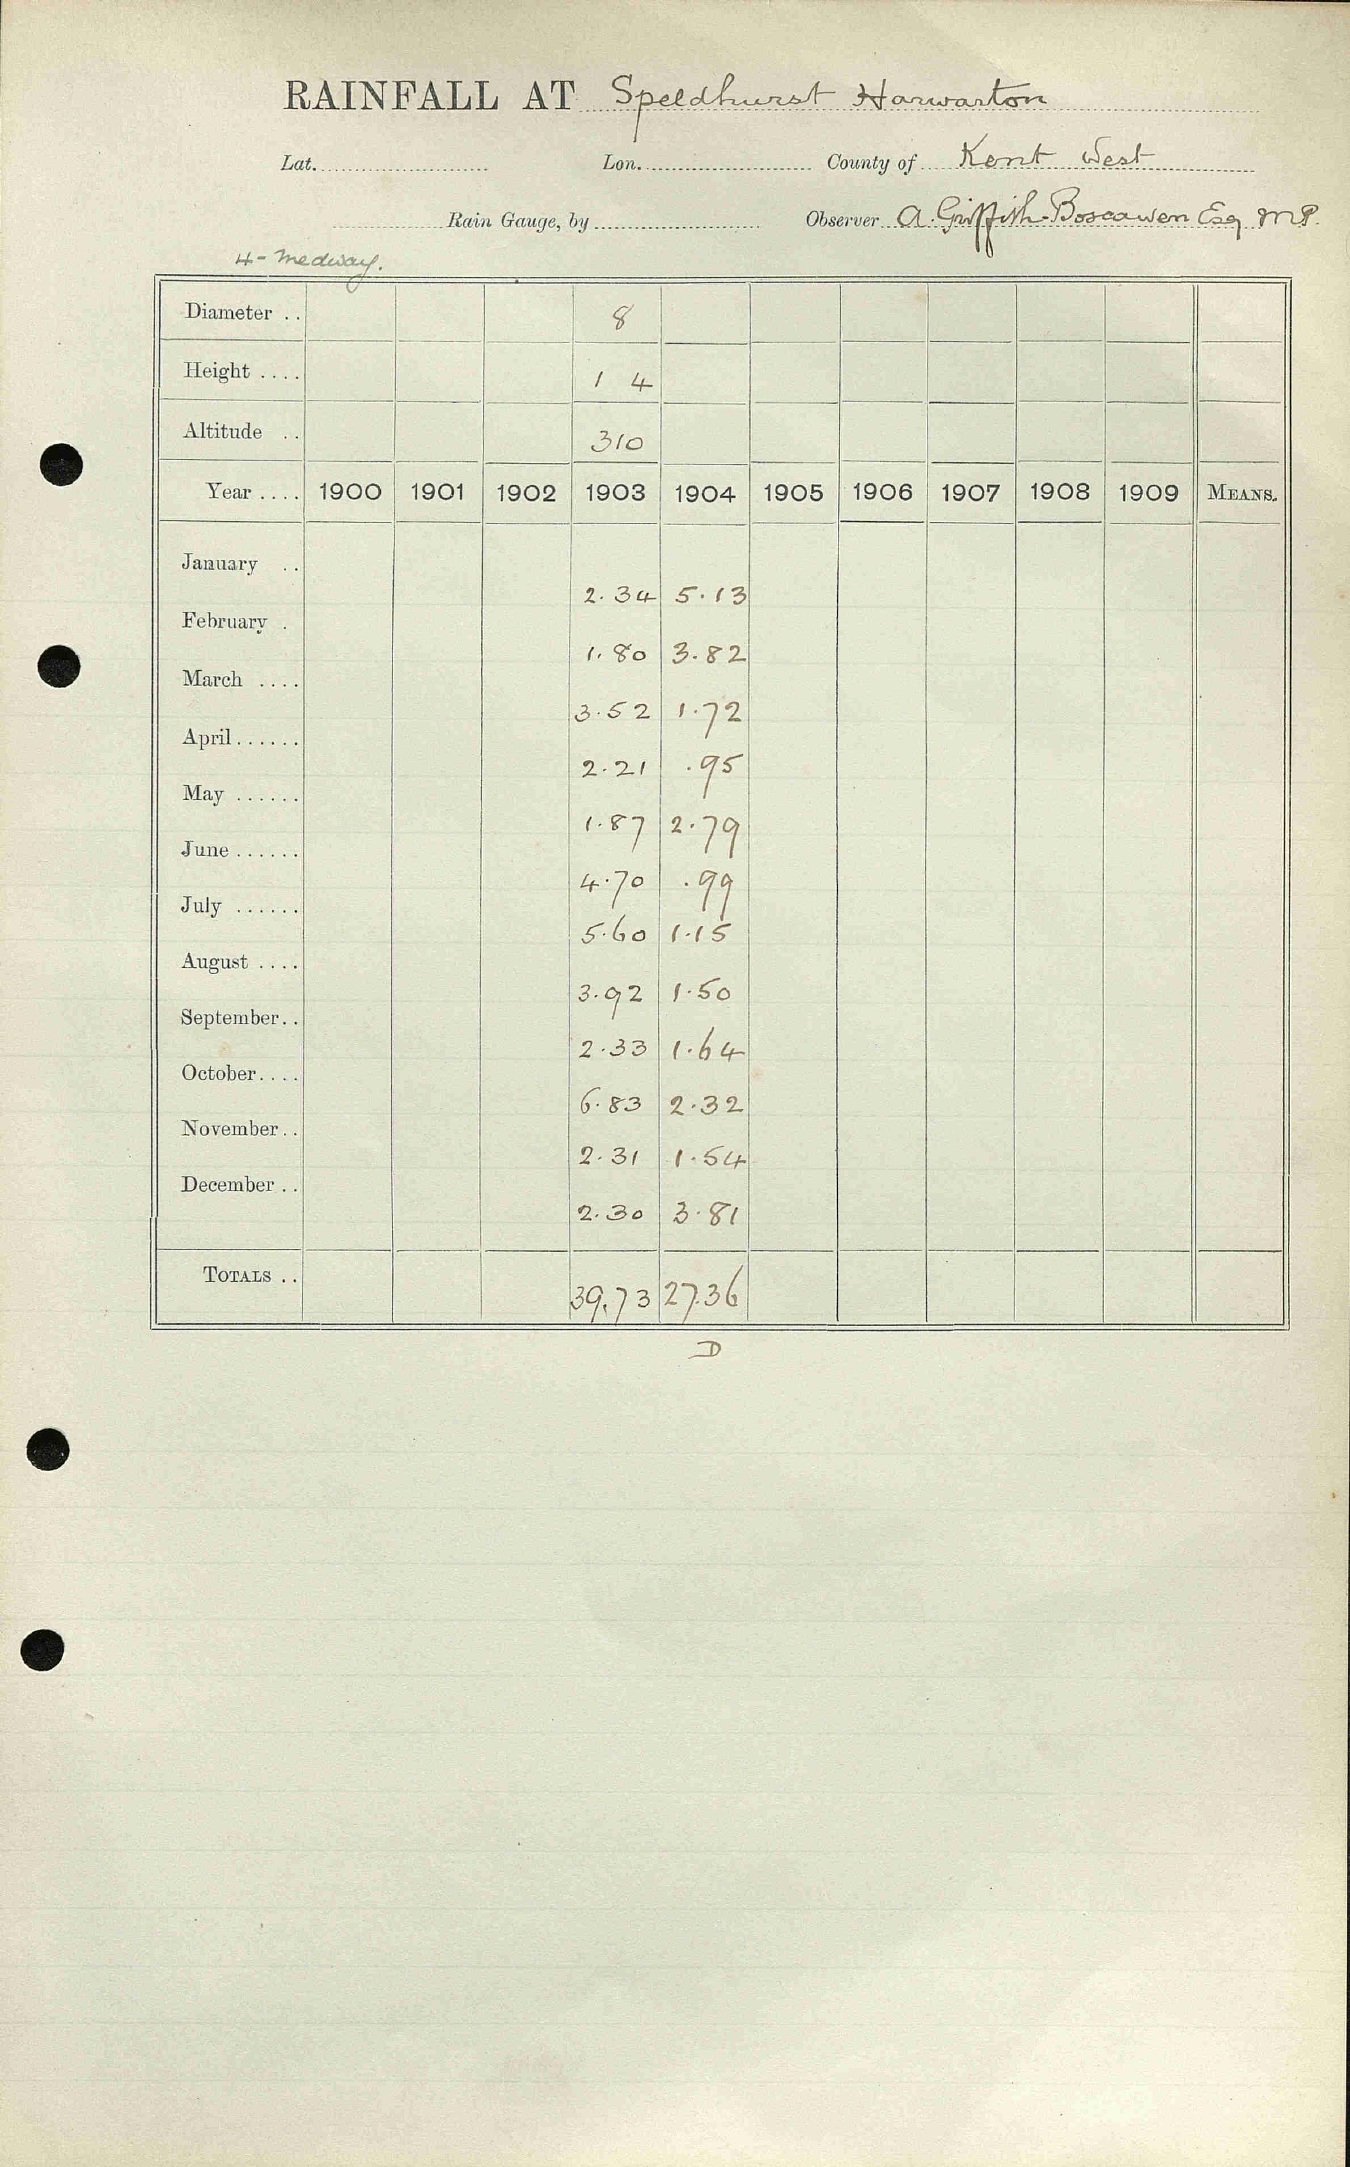 RAINFALL AT Speldhurst Harwarton
Lat. Lon. County of Kent West
Rain Gauge, by Observer A. Griffith-Boscawen Esq M.P.
4 - Medway.
Diameter .. 8
Height .... 1 4
Altitude .. 310
Year .... 1900 1901 1902 1903 1904 1905 1906 1907 1908 1909 MEANS.
January .. 2.34 5.13
February . 1.80 3.82
March .... 3.52 1.72
April ...... 2.21 .95
May ...... 1.87 2.79
June ...... 4.70 .99
July ...... 5.60 1.15
August .... 3.92 1.50
September.. 2.33 1.64
October.... 6.83 2.32
November.. 2.31 1.54
December .. 2.30 3.81
TOTALS .. 39.73 27.36
D